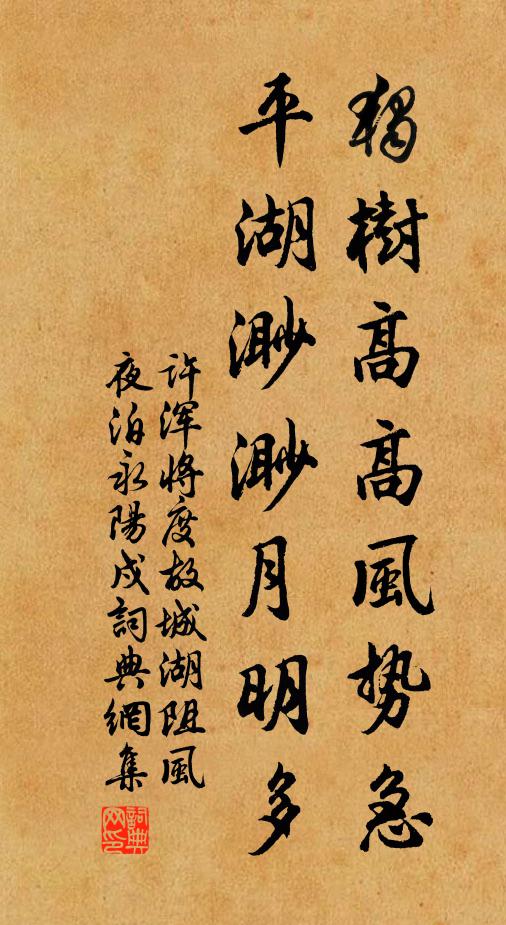 獨樹高高風势急
平湖渺渺月明多
许渾將度故城湖阻風
夜泊永陽戍詞典網集
詞典
网印